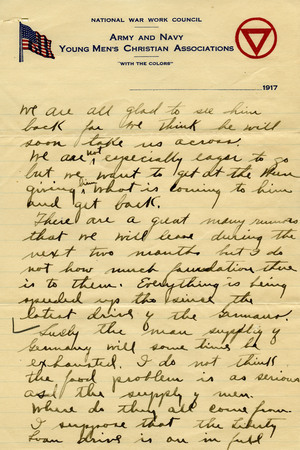 NATIONAL WAR WORK COUNCIL
ARMY AND NAVY
YOUNG MEN'S CHRISTIAN ASSOCIATIONS
"WITH THE COLORS"
1917
We are all glad to see him
back for we think he will
soon take us across.
We are not especially eager to go
but we want to get at the Hun
giving him what is coming to him
and get back.
There are a great many rumors
that we will leave during the
next two months but I do
not how much foundation there
is to them. Everything is being
speeded up since the
latest drive of the Germans.
Surely the man supply of
Germany will some time be
exhausted. I do not think
the food problem is as serious
as the supply of men.
Where do they all come from.
I suppose that the Liberty
Loan drive is on in full